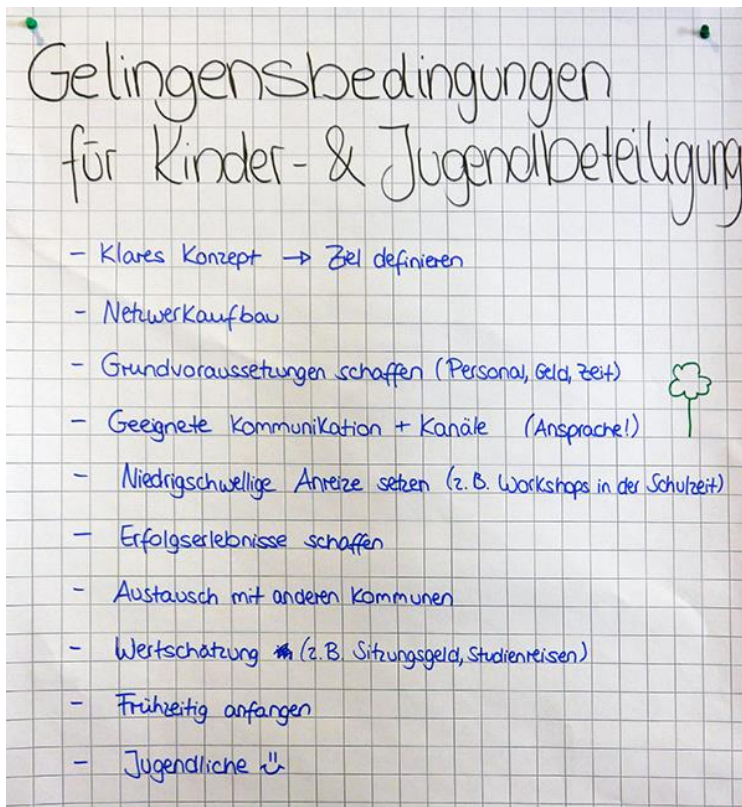 Gelingensbedingungen
für Kinder- & Jugendbeteiligung
- Klares Konzept → Ziel definieren
- Netzwerkaufbau
- Grundvoraussetzungen schaffen (Personal, Geld, Zeit)
- Geeignete Kommunikation + Kanäle (Ansprache!)
- Niedrigschwellige Anreize setzen (z.B. Workshops in der Schulzeit)
- Erfolgserlebnisse schaffen
- Austausch mit anderen Kommunen
- Wertschätzung (z.B. Sitzungsgeld, Studienreisen)
- Frühzeitig anfangen
- Jugendliche ü